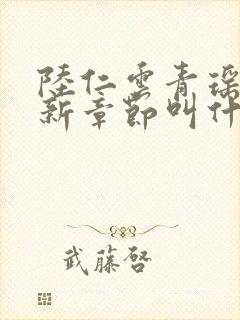 陸仁雲青瑤
新章節叫什
武藤啓